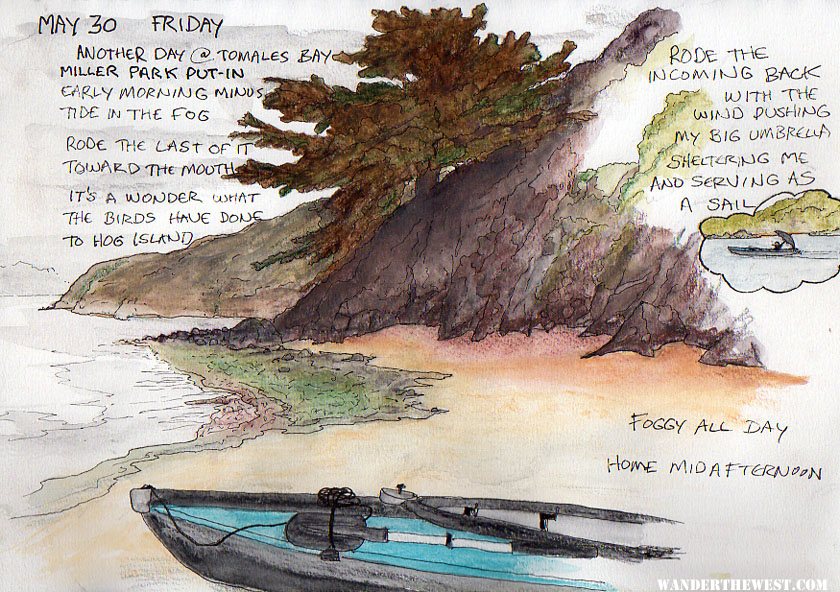 MAY 30 FRIDAY
ANOTHER DAY @ TOMALES BAY
MILLER PARK PUT-IN
EARLY MORNING MINUS
TIDE IN THE FOG
RODE THE LAST OF IT
TOWARD THE MOUTH
IT'S A WONDER WHAT
THE BIRDS HAVE DONE
TO HOG ISLAND
RODE THE
INCOMING BACK
WITH THE
WIND PUSHING
MY BIG UMBRELLA
SHELTERING ME
AND SERVING AS
A SAIL
FOGGY ALL DAY
HOME MIDAFTERNOON
WANDERTHEWEST.COM